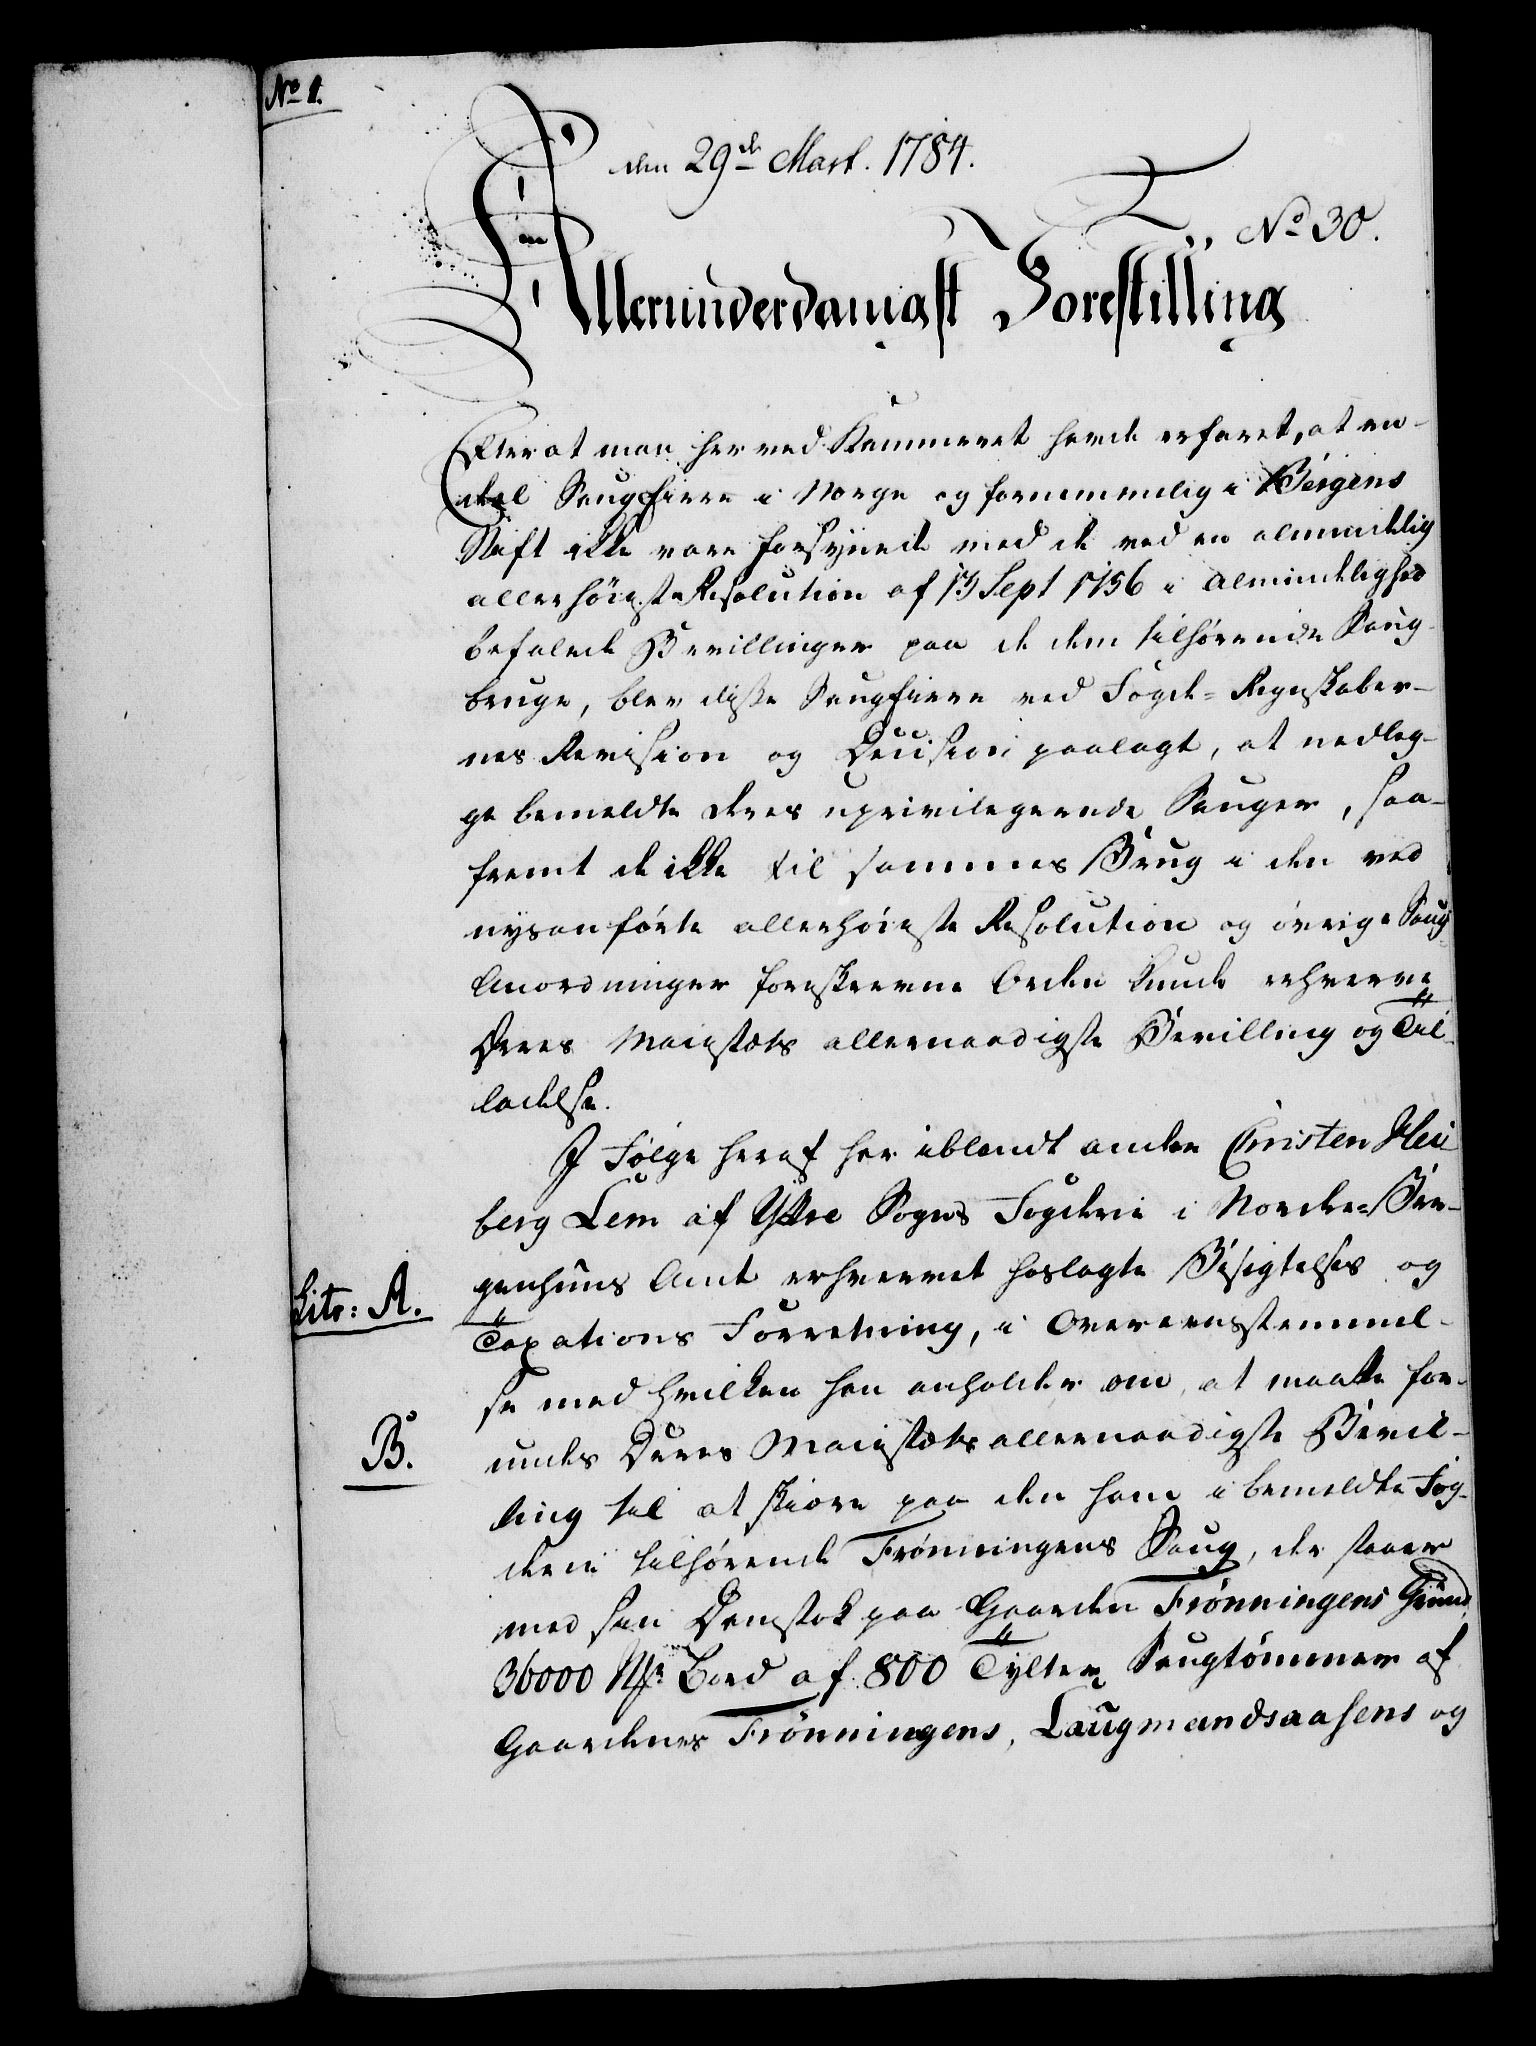 No 1.
den 29de Mart. 1784.
No 30.
Allerunderdanigst Forestilling
Efterat man her ved Kammeret havde erfaret, at en-
deel Saugejere i Norge og fornemmelig i Bergens
Stift ikke vare forsynede med de ved en almindelig
allerhöieste Resolution af 13 Sept 1756 i almindelighed
befalede Bevillinger paa de dem tilhörende Saug-
bruge, blev disse Saugejere ved Fogde-Regnskaber-
nes Revision og Decision paalagt, at nedleg-
ge bemeldte deres uprivilegerede Sauger, saa-
fremt de ikke til sammes Brug i den ved
nysanförte allerhöieste Resolution og övrige Saug
Anordninger foreskrevne Orden kunde erhverve
Deres Majestæts allernaadigste Bevilling og Til-
ladelse.
I Fölge heraf har iblandt andre Christen Hei-
berg Lem af Yttre Sogns Fogderie i Nordre-Ber-
genhuus Amt erhvervet hoslagte Besigtelses og
Litr: A.
Taxations Forretning, i Overeensstemmel-
se med hvilken han anholder om, at maatte for-
B.
undes Deres Majestæts allernaadigste Bevil-
ling til at skiære paa den ham i bemeldte Fog-
derie tilhörende Frönningens Saug, der staaer
med sin Damstok paa Gaarden Frönningens Grund,
36000 Bord af 800 Tylter Saugtömmer af
Gaardenes Frönningens, Laugmandsaasens og